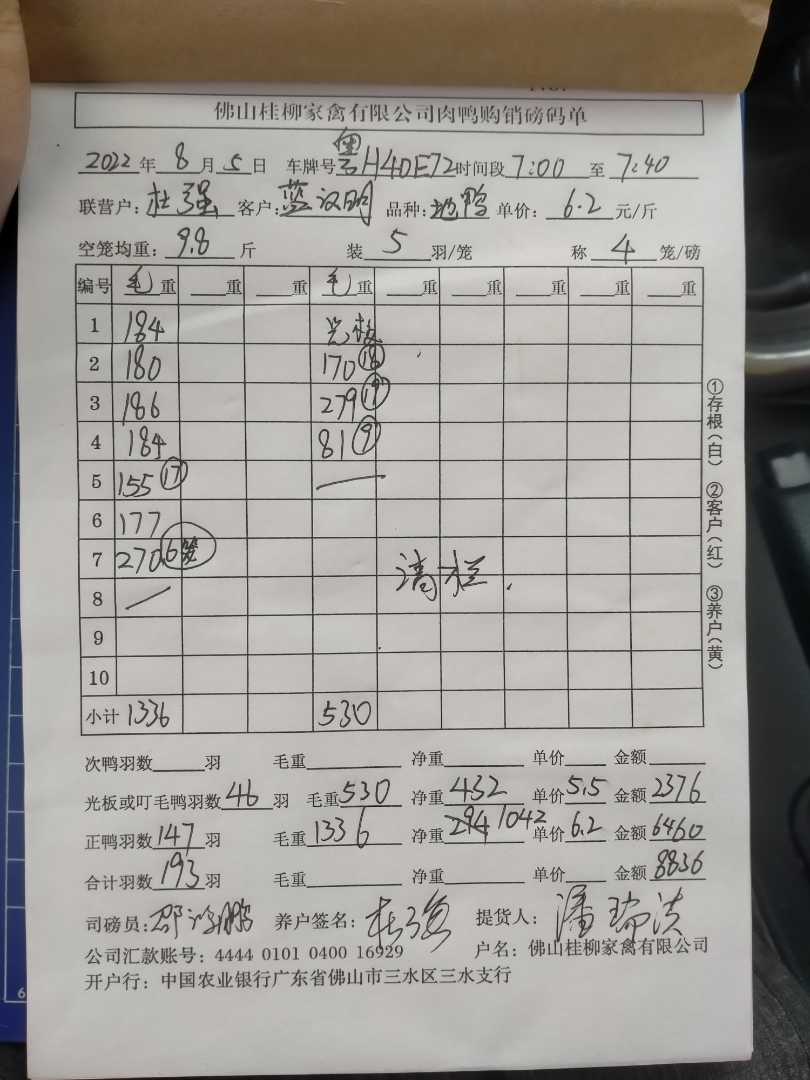 佛山桂柳家禽有限公司肉鸭购销磅码单
2022年8月5日 车牌号粤H40E72时间段7:00至7:40
联营户:杜强 客户:蓝汉明 品种:地鸭 单价:6.2元/斤
空笼均重:9.8斤 装5羽/笼 称4笼/磅
编号 毛重 重 重 毛重 重 重 重 重 重
1 184 光板
2 180 170 18
3 186 279 19
4 184 81 9
5 155 17
6 177
7 270 6笼
8
9
10
清栏.
小计 1336 530
次鸭羽数 羽 毛重 净重 单价 金额
光板或叮毛鸭羽数46羽 毛重530 净重432 单价5.5 金额2376
正鸭羽数147羽 毛重1336 净重294 1042 单价6.2 金额6460
合计羽数193羽 毛重 净重 单价 金额8836
司磅员: 养户签名:杜强 提货人:潘瑞洪
公司汇款账号:4444 0101 0400 16929 户名:佛山桂柳家禽有限公司
开户行:中国农业银行广东省佛山市三水区三水支行
①存根(白) ②客户(红) ③养户(黄)
6